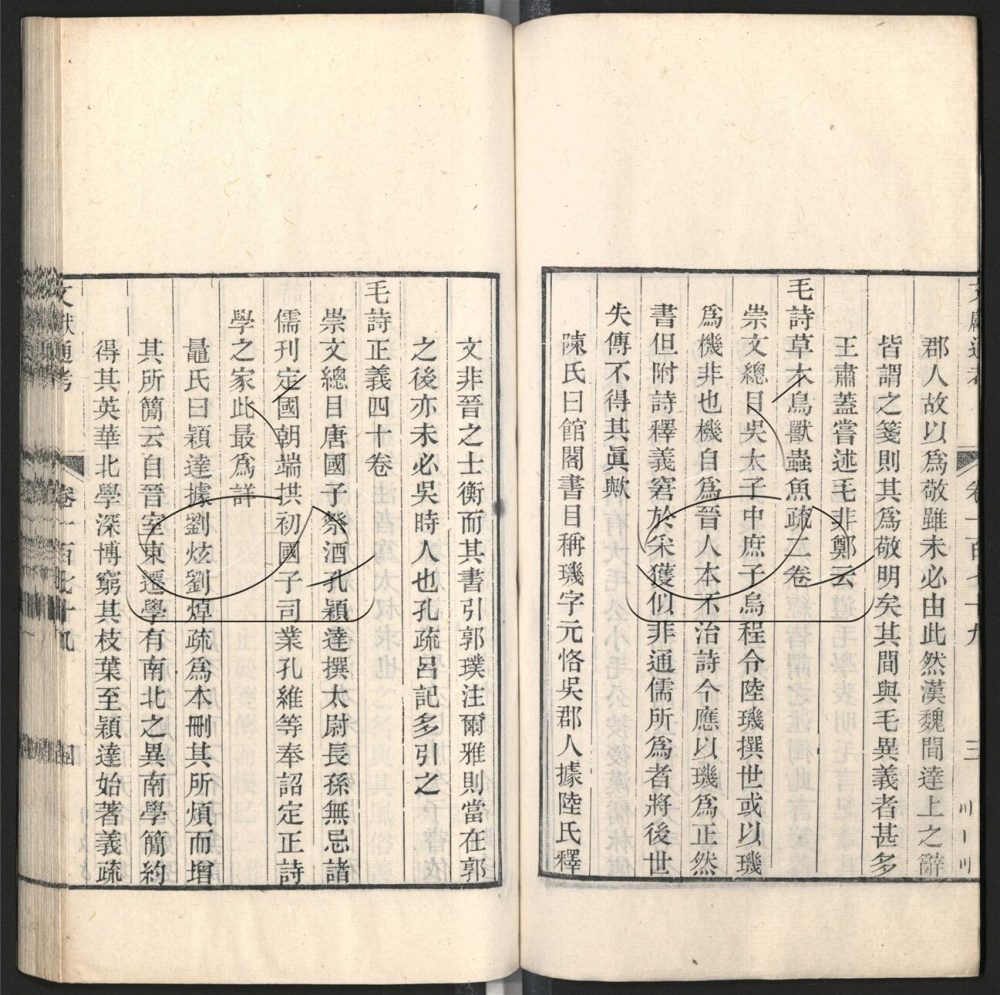 郡人故以爲敬雖未必由此然漢魏間達上之辭
皆謂之箋則其爲敬明矣其間與毛異義者甚多
王肅蓋嘗述毛非鄭云
毛詩草木鳥獸蟲魚疏二卷
崇文總目吳太子中庶子烏程令陸璣撰世或以璣
爲機非也機自爲晉人本不治詩今應以璣爲正然
書但附詩釋義窘於采獲似非通儒所爲者將後世
失傳不得其眞歟
陳氏曰館閣書目稱璣字元恪吳郡人據陸氏釋
文非晉之士衡而其書引郭璞注爾雅則當在郭
之後亦未必吳時人也孔疏呂記多引之
毛詩正義四十卷
崇文總目唐國子祭酒孔穎達撰太尉長孫無忌諸
儒刊定國朝端拱初國子司業孔維等奉詔定正詩
學之家此最爲詳
鼂氏曰穎達據劉炫劉焯疏爲本刪其所煩而增
其所簡云自晉室東遷學有南北之異南學簡約
得其英華北學深博窮其枝葉至穎達始著義疏
文獻通考 卷一百七十九